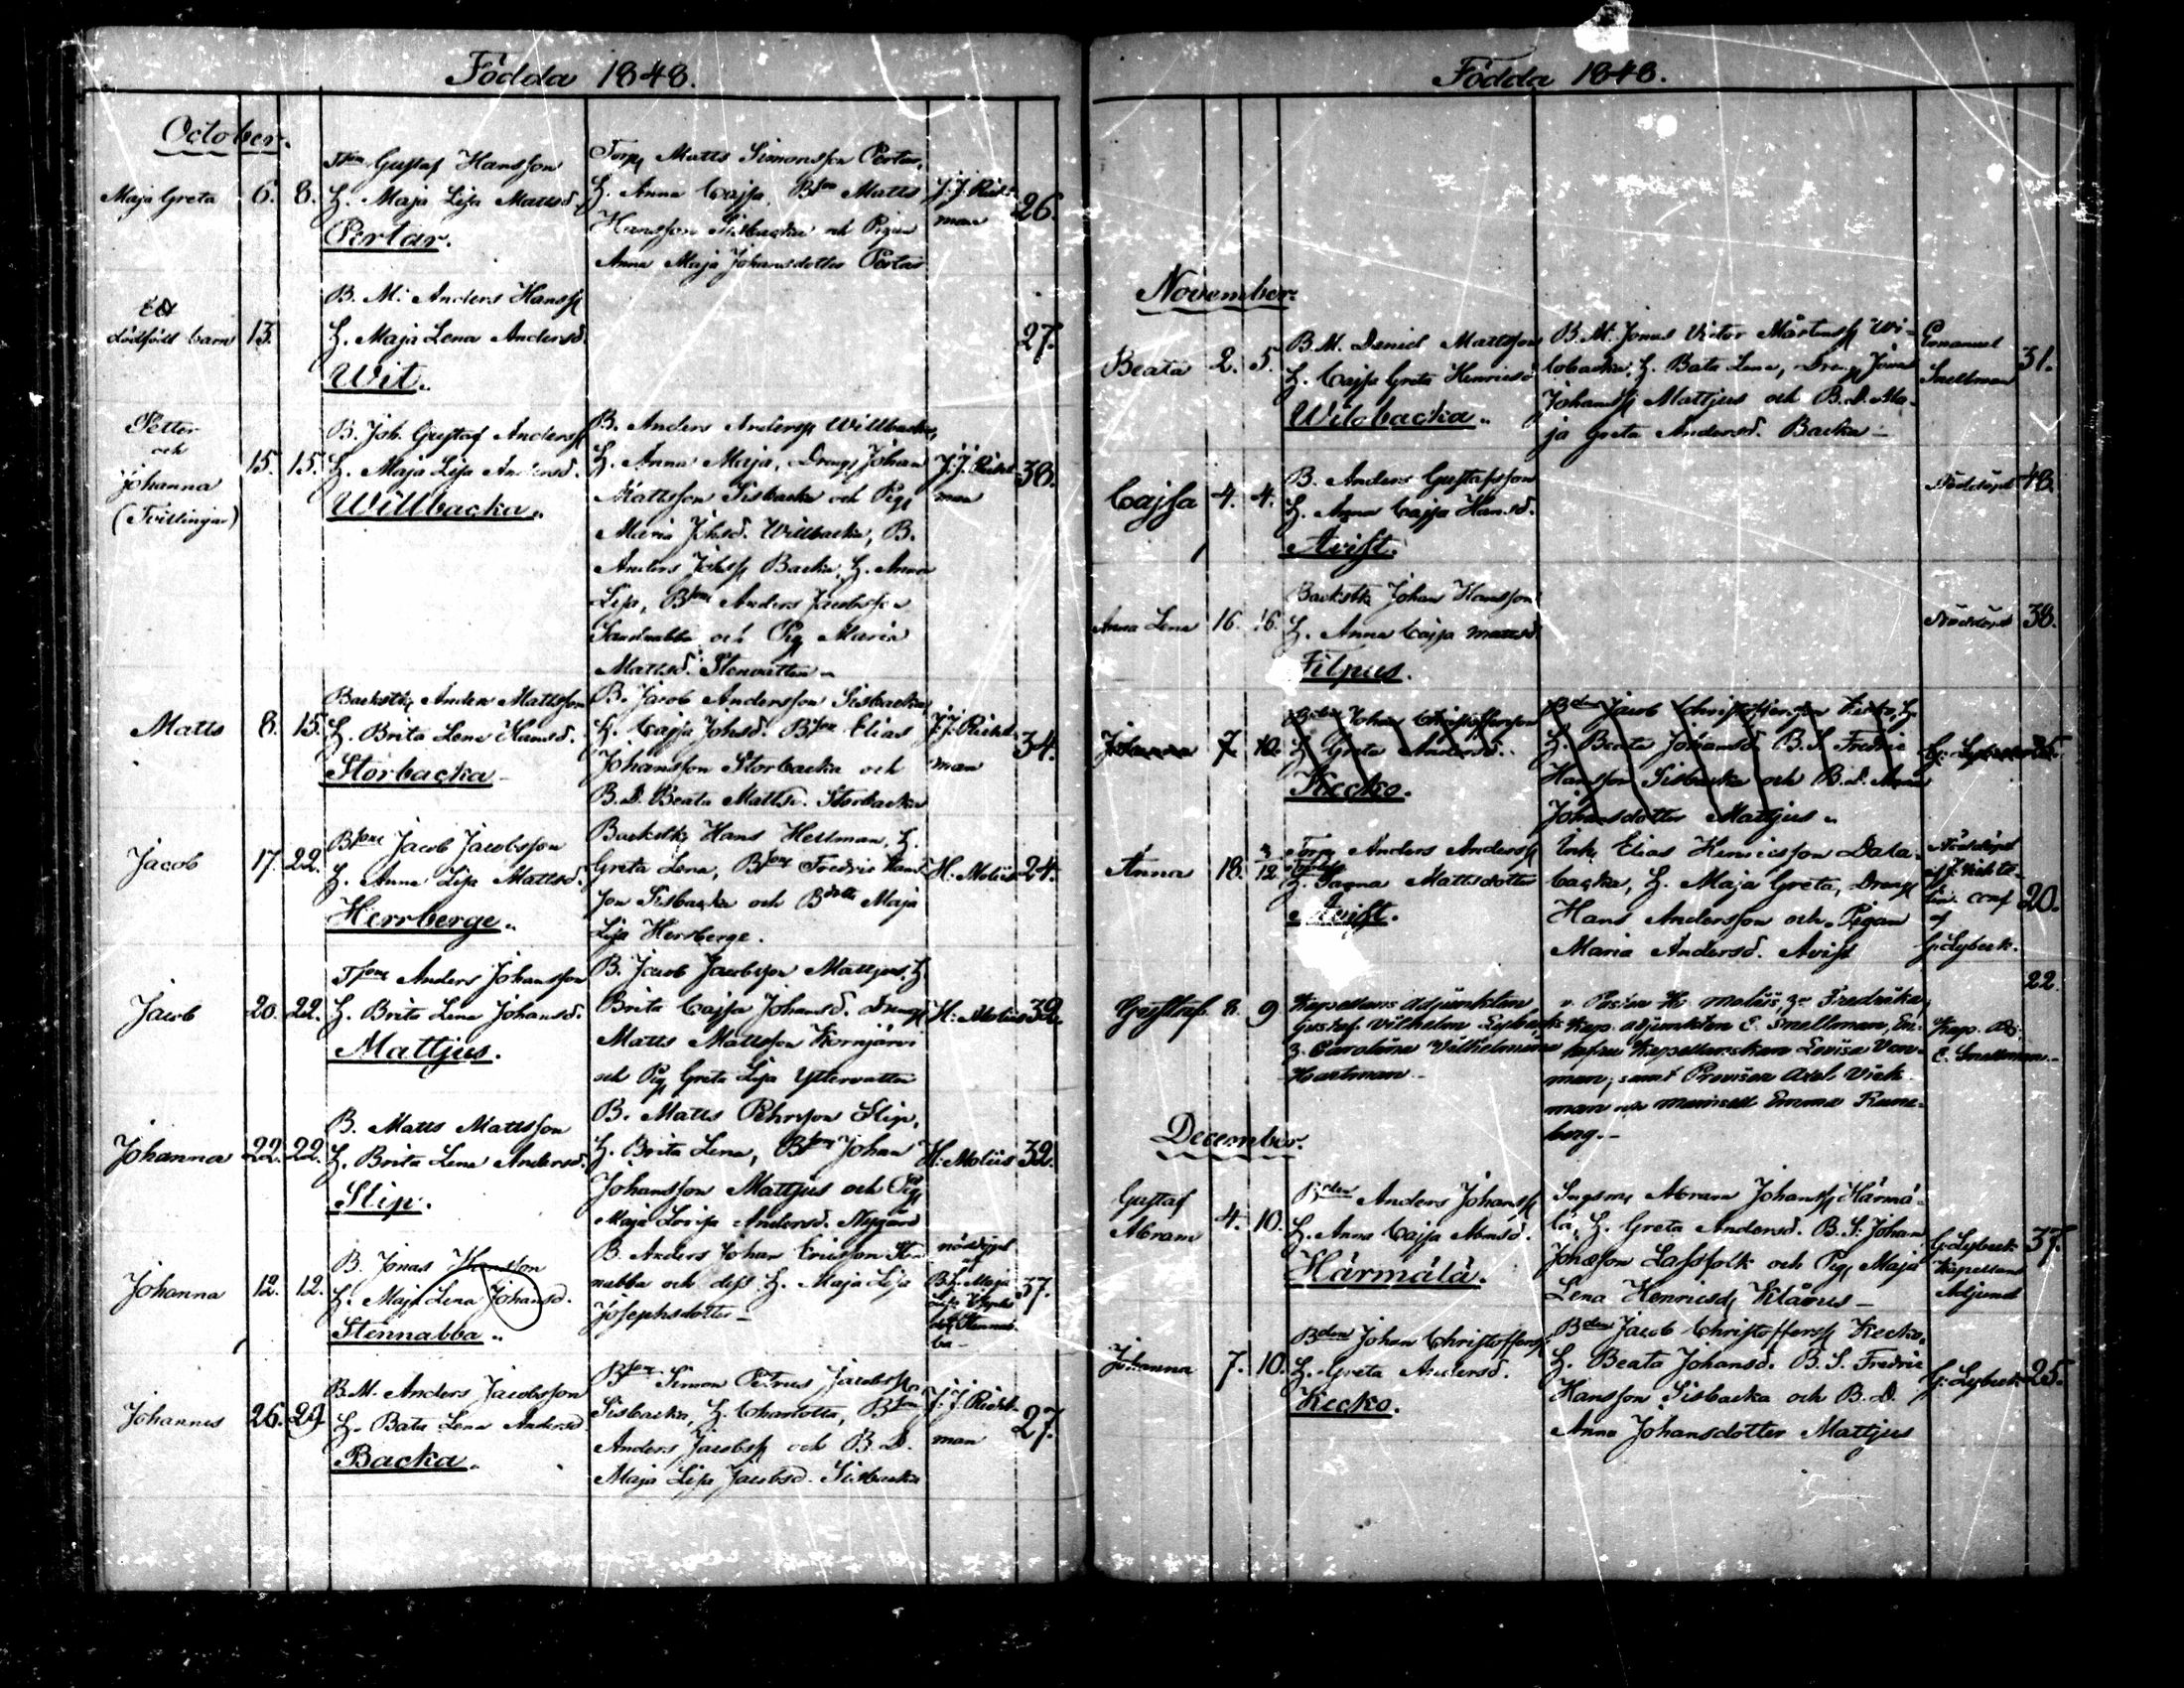 Födda 1848.
October.
Maja Greta 6. 8.
Gustaf Hansson
H. Maja Lisa Mattsd.
Pertar.
Torp. Matts Simonsson Pertar,
H. Anna Cajsa, Bson Matts
Hansson Sisbacka och Pigan
Anna Maja Johansdotter Pertar
J. J. Rickt-
man
26.
Ett
dödfödt barn 13.
B. M. Anders Hanss.
H. Maja Lena Andersd.
Wit.
27.
Petter
och
Johanna
(Tvillingar)
15. 15.
B. Joh. Gustaf Anderss.
H. Maja Lisa Andersd.
Willbacka.
B. Anders Anderss. Willbacka,
H. Anna Maja, Dreng Johan
Mattsson Sisbacka och Pig.
Maria Johsd. Willbacka, B.
Anders Johss. Backa, H. Anna
Lisa, Bson Anders Jacobsson
Sandnabba och Pig. Maria
Mattsd. Stenvatten
J. J. Rickt-
man
38.
Matts 8. 15.
Backstk. Anders Mattsson
H. Brita Lena Hansd.
Storbacka
B. Jacob Andersson Sisbacka,
H. Cajsa Johsd. Bson Elias
Johansson Storbacka och
B. D. Beata Mattsd. Storbacka
J. J. Rickt-
man
34.
Jacob 17. 22.
Bson Jacob Jacobsson
H. Anna Lisa Mattsd.
Herrberge.
Backstk. Hans Hellman, H.
Greta Lena, Bson Fredric Hans-
son Sisbacka och Bdotter Maja
Lisa Herrberge.
H. Moliis
24.
Jacob 20. 22.
Tson Anders Johansson
H. Brita Lena Johansd.
Mattjus.
B. Jacob Jacobsson Mattjus, H.
Brita Cajsa Johansd. Dreng
Matts Mattsson Kornjärvi
och Pig. Greta Lisa Yttervatten
H. Moliis
32.
Johanna 22. 22.
B. Matts Mattsson
H. Brita Lena Andersd.
Slip.
B. Matts Pehrsson Slip,
H. Brita Lena, Bson Johan
Johansson Mattjus och Pig.
Maja Lovisa Andersd. Nygård
H. Moliis
32.
Johanna 12. 12.
B. Jonas Hansson
H. Maja Lena Johansd.
Stennabba
B. Anders Johan Ericsson Sten-
nabba och dess H. Maja Lisa
Josephsdotter
nöddöpt
B. H. Maja
Lisa
Stennab-
ba
37.
Johannes 26. 29.
B. M. Anders Jacobsson
H. Bata Lena Andersd.
Backa.
Bson Simon Petrus Jacobss.
Sisbacka, H. Charlotta, Bson
Anders Jacobss. och B. D.
Maja Lisa Jacobsd. Sisbacka
J. J. Rickt-
man
27.
Födda 1848.
November.
Beata 2. 5.
B. M. Daniel Mattsson
H. Cajsa Greta Henricsd.
Witobacka.
B. M. Jonas Victor Mårtenss. Wi-
tobacka, H. Bata Lena, Dreng Jonas
Johanss. Mattjus och B. D. Ma-
ja Greta Andersd. Backa
Emanuel
Snellman
31.
Cajsa 4. 4.
B. Anders Gustafsson
H. Anna Cajsa Hansd.
Avist.
Nöddöpt 43.
Anna Lena 16. 16.
Backstk. Johan Hansson
H. Anna Cajsa Mattsd.
Filpus.
Nöddöpt 38.
Johanna 7 10.
Bden Johan Christoffersson
H. Greta Andersd.
Kecko.
Bden Jacob Christoffersson Kecko, H.
H. Beata Johansd. B. S. Fredric
Hansson Sisbacka och B. D. Anna
Johansdotter Mattjus
G. Lybeck 25.
Anna 18. 3/12
Torp. Anders Anderss.
H. Sanna Mattsdotter
Avist.
Enk. Elias Henricsson Data-
backa, H. Maja Greta, Dreng
Hans Andersson och Pigan
Maria Andersd. Avist
Nöddöpt
conf
af
G. Lybeck.
20.
Gustaf 8. 9
Kapellans adjunkten
Gustaf Vilhelm Lybeck
H. Carolina Vilhelmina
Hartman
v. Pastor H. Moliis, H. Fredrika,
Kap. adjunkten E. Snellman, En-
kefru Kapellanskan Lovisa Von-
man, samt Provisor Axel Vick-
man och Mamsell Emma Rune-
berg.
Kap. Adj.
E. Snellman
22.
December.
Gustaf
Abram
4. 10.
Bden Anders Johanss.
H. Anna Cajsa Abrsd.
Härmälä.
Abram Johanss. Härmä-
lä, H. Greta Andersd. B. S. Johan
Jonasson Lassfolk och Pig. Maja
Lena Henricsd. Klårus
G. Lybeck
Kapellans
Adjunct
37.
Johanna 7. 10.
Bden Johan Christofferss.
H. Greta Andersd.
Kecko.
Bden Jacob Christofferss. Kecko,
H. Beata Johansd. B. S. Fredric
Hansson Sisbacka och B. D.
Anna Johansdotter Mattjus
G. Lybeck 25.